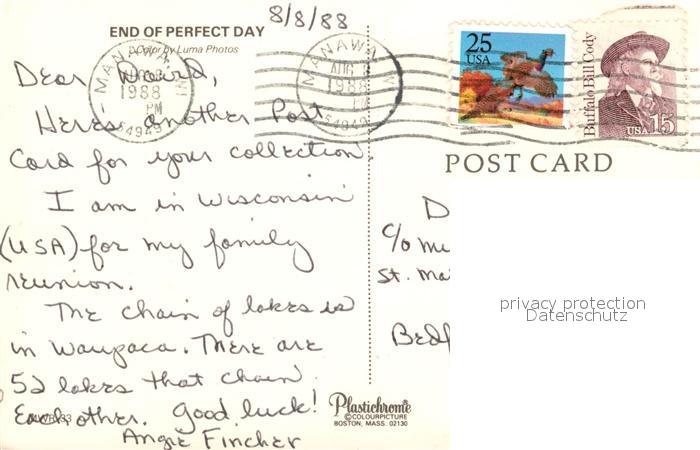 END OF PERFECT DAY
Color by Luma Photos
8/8/88
MANAWA, WI
1988
PM
54949
MANAWA, WI
AUG 8
1988
PM
54949
25
USA
Buffalo Bill Cody
USA 15
POST CARD
Dear David,
Here's another Post
Card for your collection.
I am in Wisconsin
(USA) for my family
reunion.
The chain of lakes is
in Waupaca. There are
52 lakes that chain
Each other. Good luck!
Angie Fincher
D
c/o Mu
St. Ma
Bedf
privacy protection
Datenschutz
Plastichrome®
©COLOURPICTURE
BOSTON, MASS. 02130